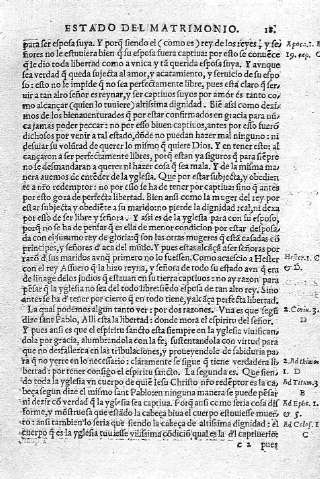 ESTADO DEL MATRIMONIO. 18.
para ser esposa suya. Y porq̃ siendo el (como es) rey de los reyes, y se
ñores no le estuviera bien q̃ su esposa fuera captiua: por esto se conoce
q̃ le dio toda libertad como a vnica y tã querida esposa suya. Y aunque
sea verdad q̃ queda subjecta al amor, y acatamiento, y seruicio de su espo
so: esto no le impide q̃ no sea perfectamente libre, pues està claro q̃ ser
uir a tan alto señor es reynar, y ser captiuos suyos por amor es tanto co
mo alcançar (quien lo tuuiere) altissima dignidad. Biẽ assi como dezi
mos de los bienauenturados q̃ por estar confirmados en gracia para nũ
ca jamas poder peccar: no por esso biuen captiuos, antes por esso fuerõ
dichosos por venir a tal estado, dõde no puedan hazer mal ninguno: ni
desuiar su volũtad de querer lo mismo q̃ quiere Dios. Y en tener esto: al
cançaron a ser perfectamente libres, porq̃ estan ya siguros q̃ para siẽpre
no se desmandaran a querer ni hazer cosa q̃ sea mala. Y de la misma ma
nera auemos de entẽder de la yglesia. Que por estar subjecta, y obedien
te a nro redemptor: no por esso se ha de tener por captiua: sino q̃ antes
por esto goza de perfecta libertad. Bien assi como la muger del rey por
estar subjecta y obediẽte a su marido no pierde la dignidad real, ni dexa
por esso de ser libre y señora. Y assi es de la yglesia para con su esposo,
porq̃ no se ha de pensar q̃ es ella de menor condicion por estar desposa
da con el summo rey de gloria: q̃ son las otras mugeres q̃ està casadas cõ
principes, y señores d'aca del mũdo. Y pues estas alcãçã a ser señoras por
razõ d' sus maridos aunq̃ primero no lo fuessen. Como acaescio a Hester
con el rey Assuero q̃ la hizo reyna, y señora de todo su estado aun q̃ era
de linage delos judios q̃ estauan en su tierra captiuos: no ay razon para
pẽsar q̃ la yglesia no sea del todo libre siẽdo esposa de tan alto rey. Sino
antes se ha d' tener por cierto q̃ en todo tiene, y alcãça perfecta libertad.
La qual podemos algun tanto ver: por dos razones. Vna es que segũ
dize sant Pablo, Alli està la libertad: donde mora el espiritu del señor.
Y pues ansi es que el espiritu sancto esta siempre en la yglesia viuificandola
por gracia, alumbrandola con la fe, sustentandola con virtud para
que no desfallezca en las tribulaciones, y proueyendole de sabiduria pa
ra q̃ no yerre en lo necessario: claramente se sigue q̃ tiene verdadera li
bertad: por tener consigo el espiritu sancto. La segunda es. Que sien
do toda la yglesia vn cuerpo de quiẽ Iesu Christo nro redẽptor es la ca
beça segun dize el mismo sant Pablo: en ninguna manera se puede pẽsar
ni dezir cõ verdad q̃ la yglesia sea captiua. Porq̃ ansi como seria cosa dis
forme, y mõstruosa que estãdo la cabeça biua el cuerpo estuuiesse muer
to: ansi tambien lo seria que siendo la cabeça de altissima dignidad: el
cuerpo q̃ es la yglesia tuuiesse vilissima cõdiciõ qual es la dl captiuerio:
c 2 pues
Hester.
& D.
D
I. D
B
& 5.
C